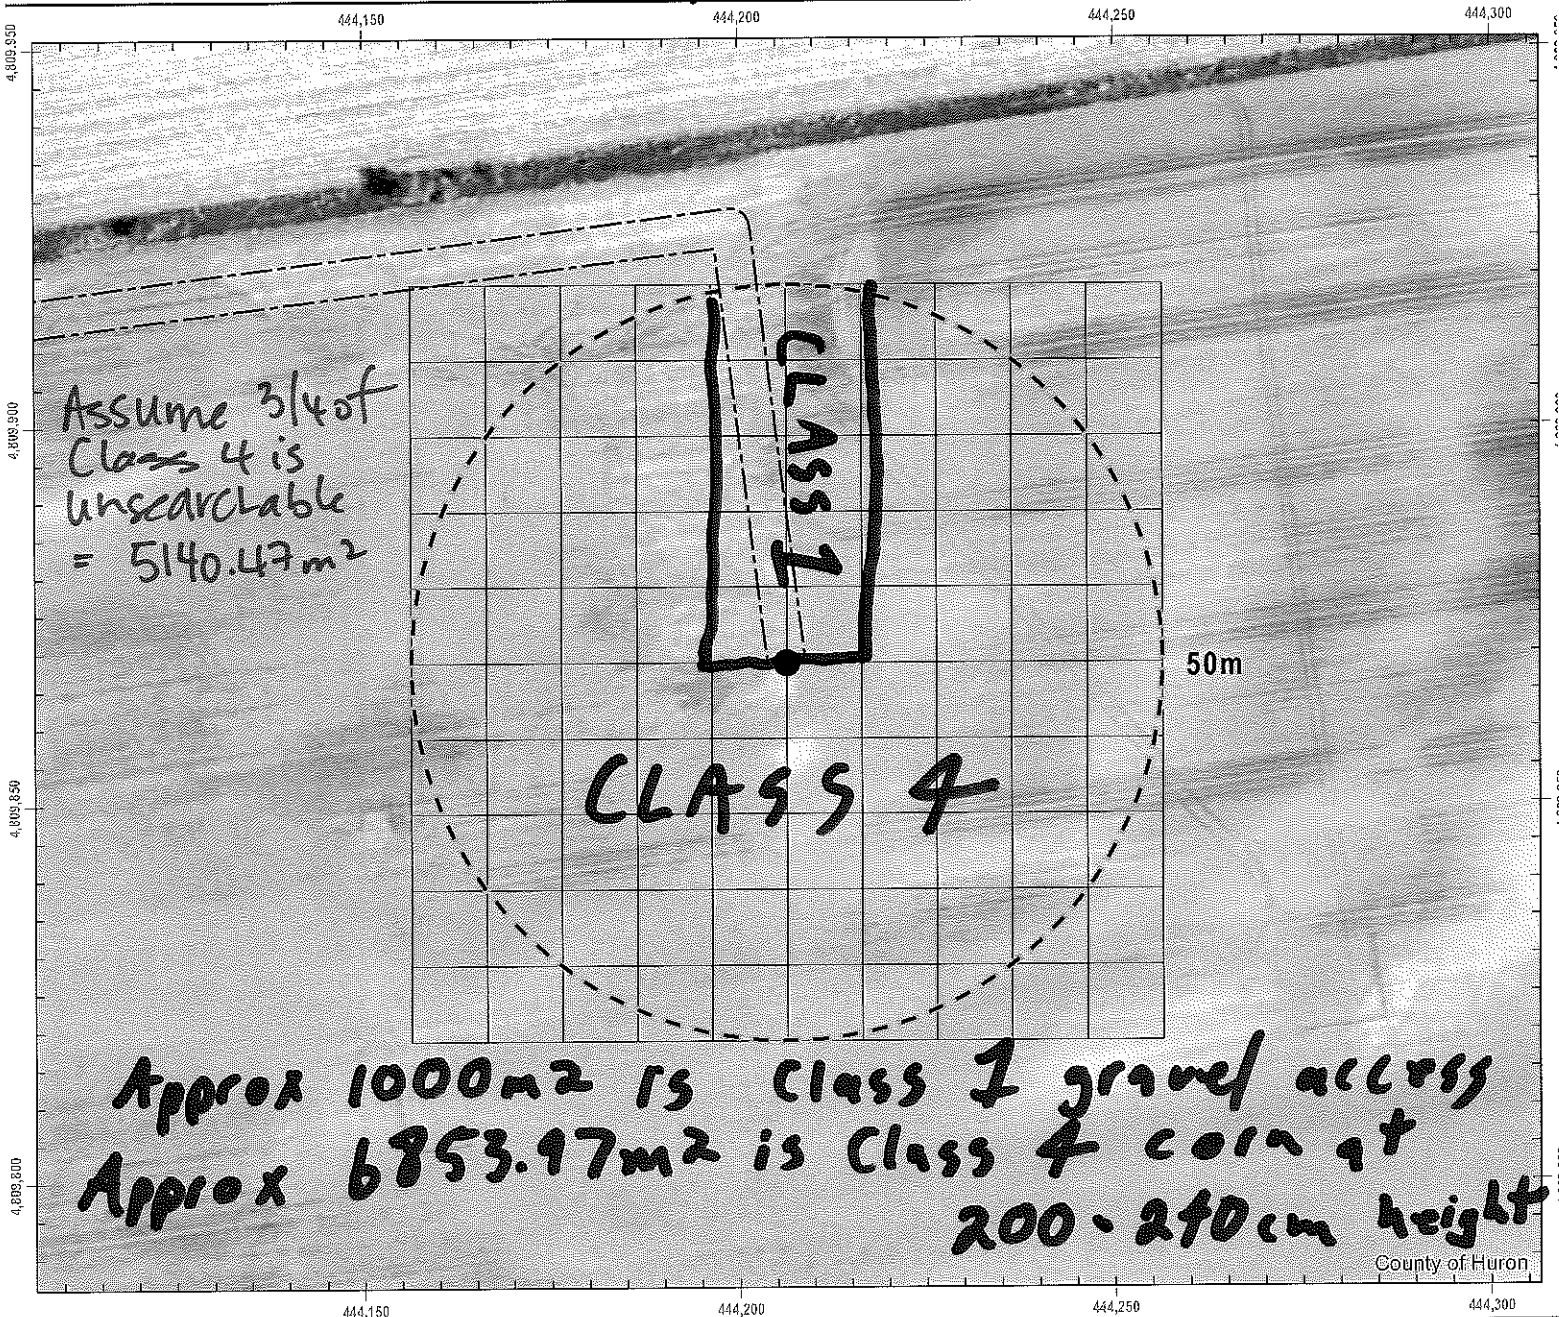 444,150 444,200 444,250 444,300
4,809,950
Assume 3/4 of
Class 4 is
unsearchable
= 5140.47m²
4,809,900
CLASS 1
50m
CLASS 4
4,809,850
Approx 1000m2 is Class 1 gravel access
Approx 6853.97m2 is Class 4 corn at
200-240cm height
4,809,800
County of Huron
444,150 444,200 444,250 444,300